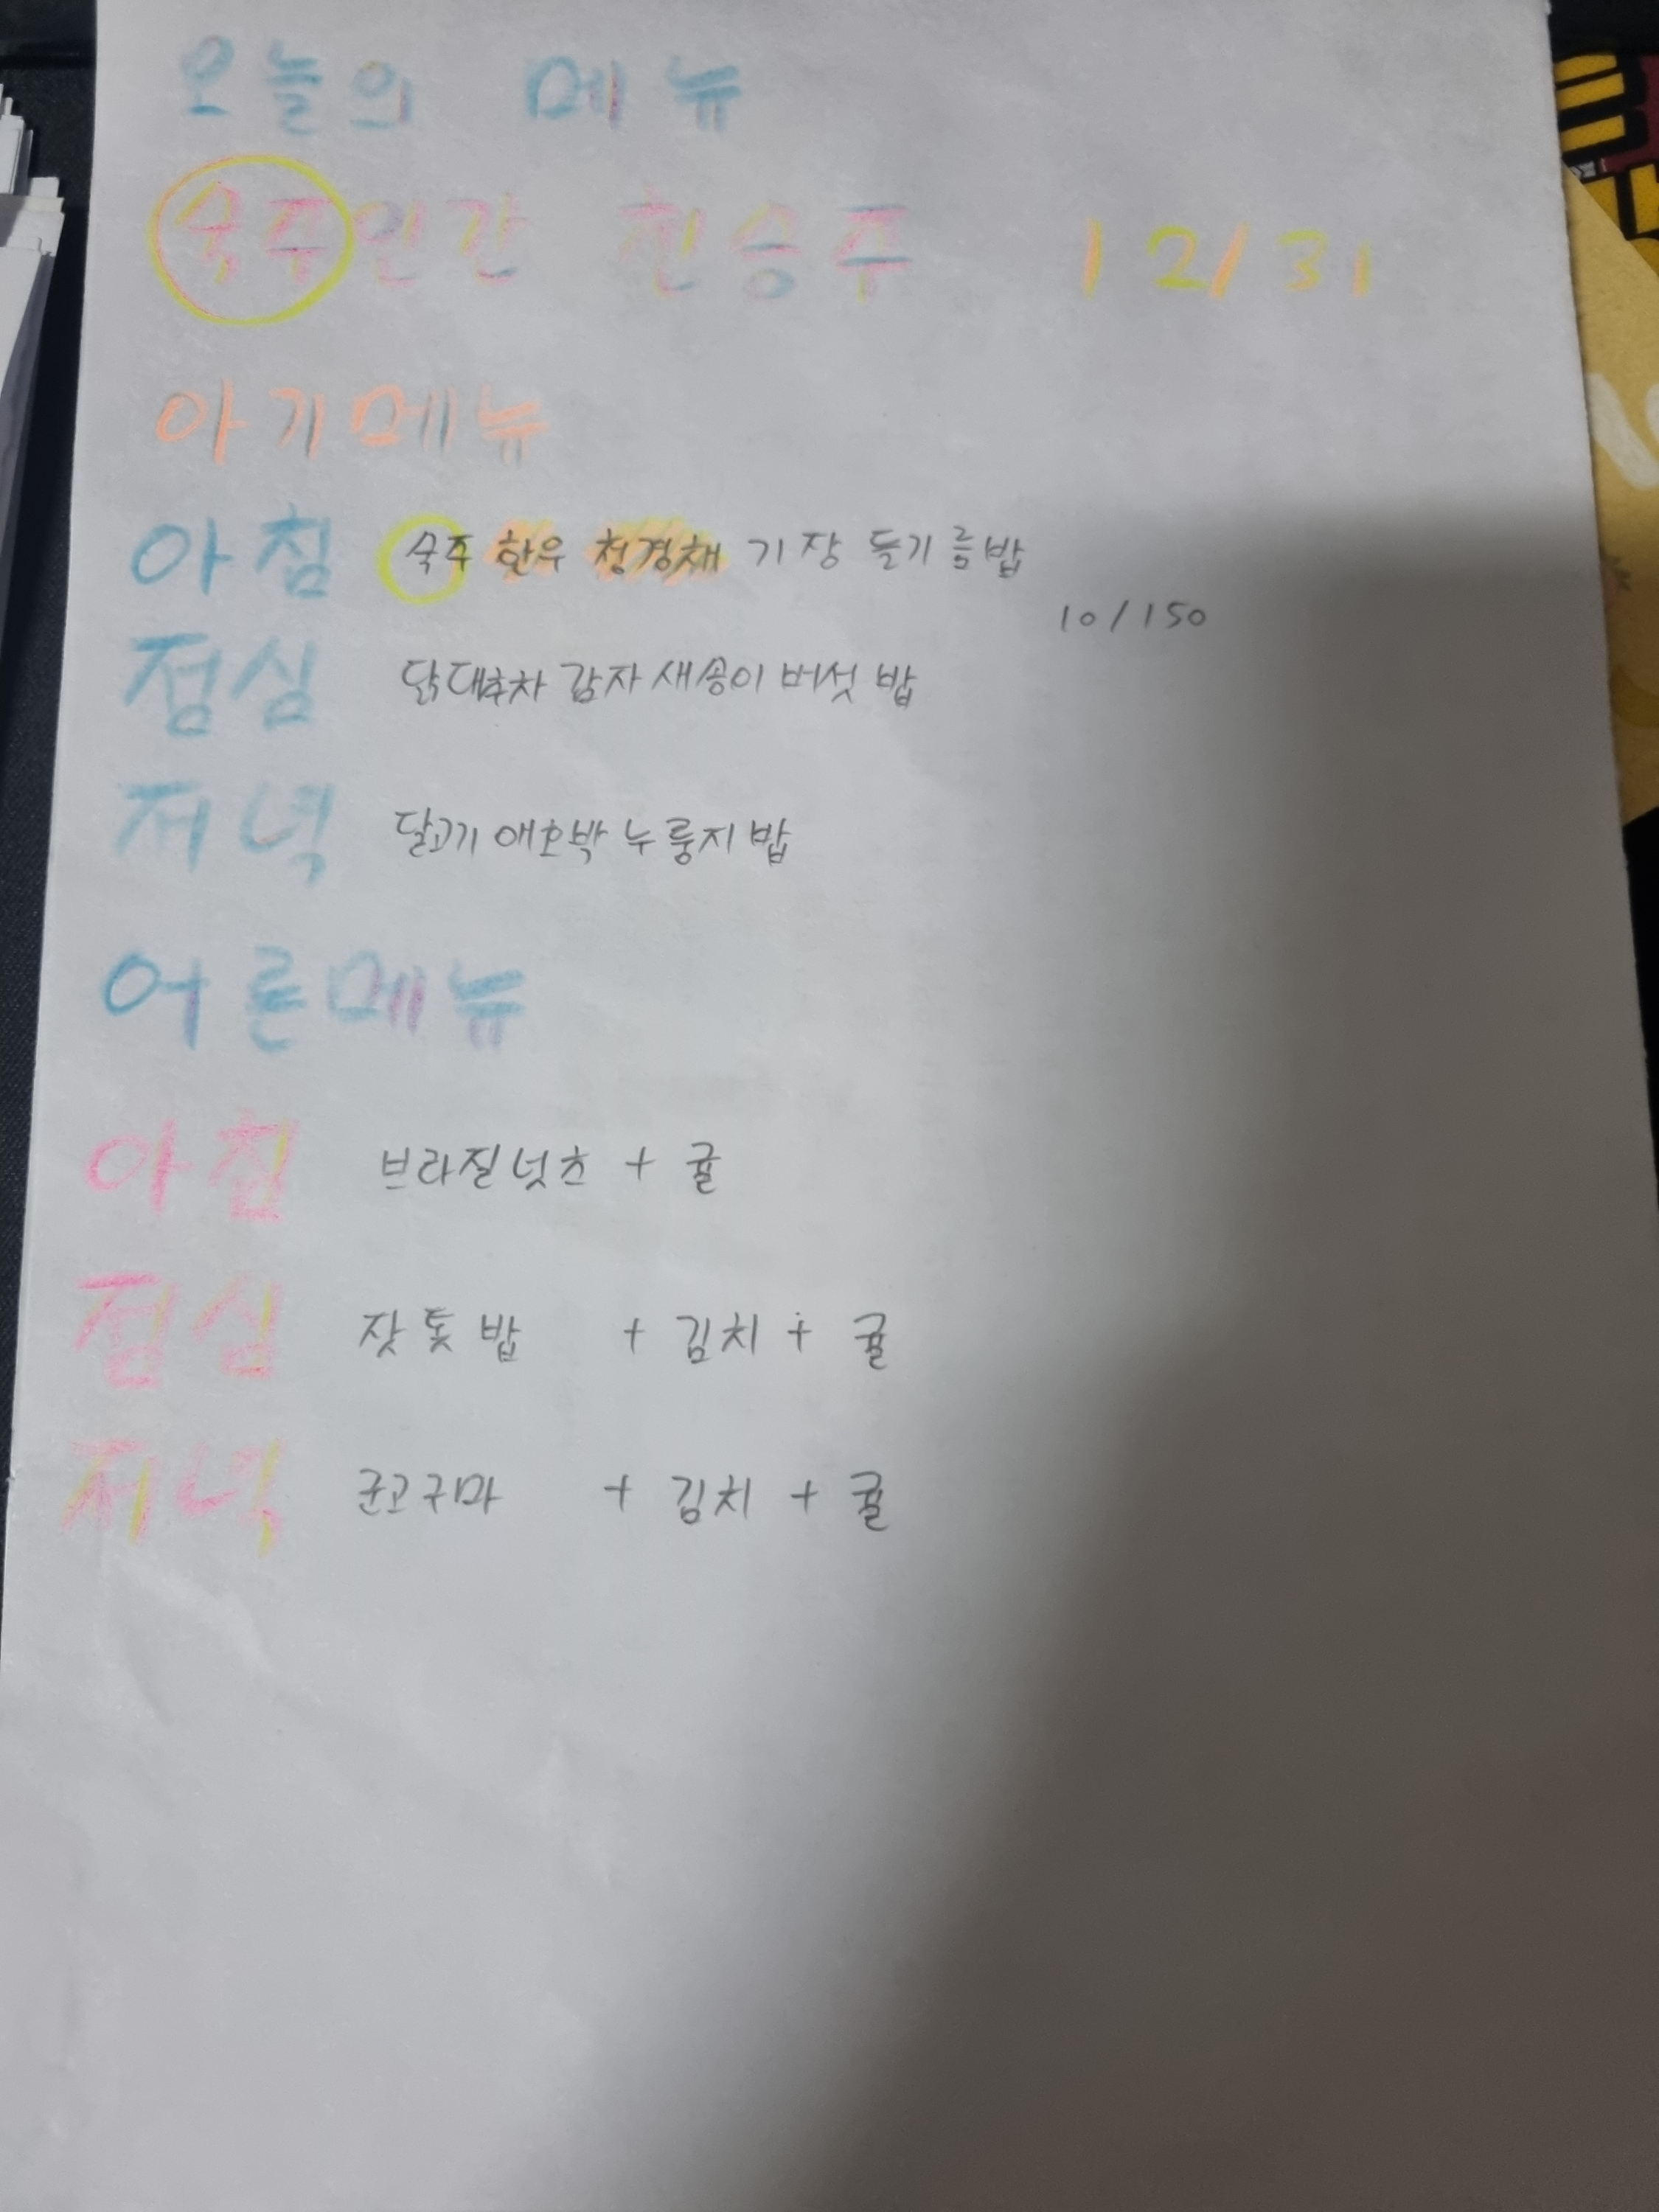 오늘의 메뉴
숙주인간 천승주 12/31
아기메뉴
아침 숙주 한우 청경채 기장 들기름밥
10/150
점심 닭대추차 감자 새송이 버섯 밥
저녁 달고기 애호박 누룽지 밥
어른메뉴
아침 브라질넛츠 + 귤
점심 잣톳밥 + 김치 + 귤
저녁 군고구마 + 김치 + 귤